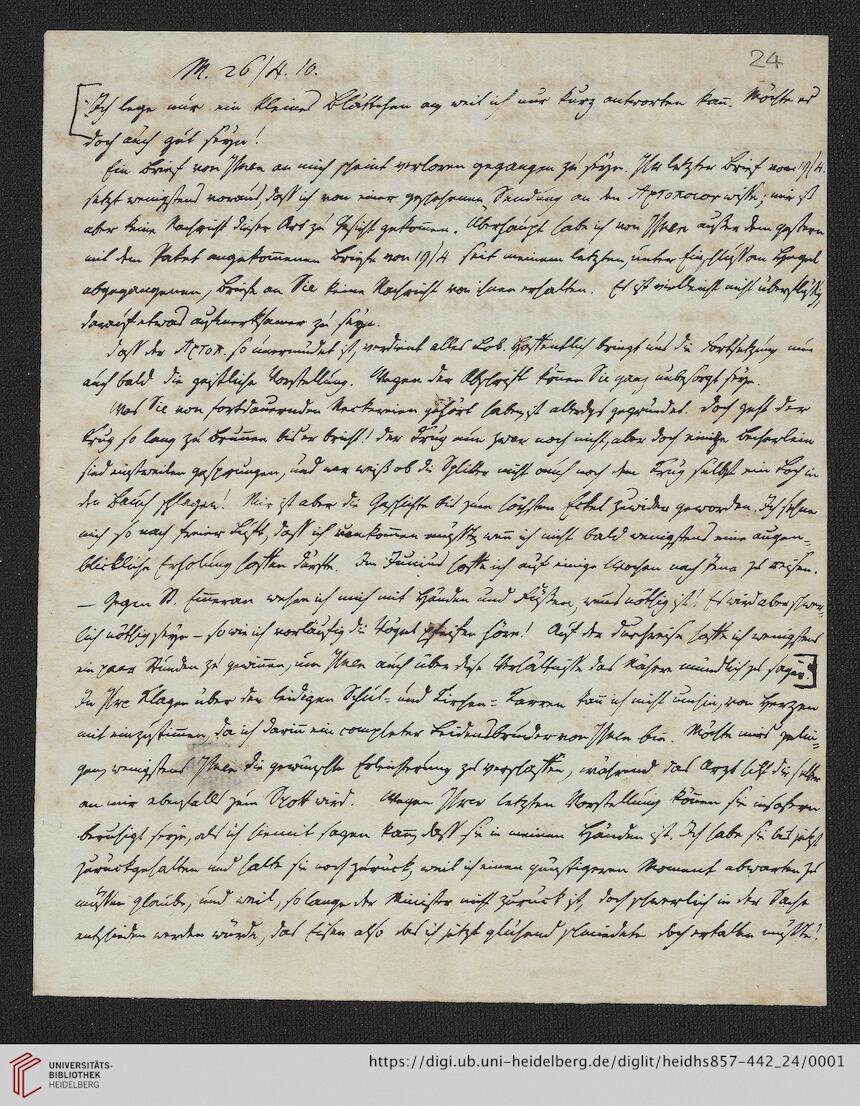 24
M. 26/4. 10.
Ich lege mir ein kleines Blättchen an, weil ich nur kurz antworten kann. Möchte es
doch auch gut seyn!
Ein Brief von Ihnen an mich scheint verloren gegangen zu seyn. Ihr letzter Brief vom 19/4.
setzt wenigstens voraus, daß ich von einer geschehenen Sendung an den Αρτοποιον wisse; mir ist
aber keine Nachricht dieser Art zu Gesicht gekommen. Überhaupt habe ich von Ihnen außer dem gestern
mit dem Paket angekommenen Briefe von 19/4 seit meinem letzten, unter Einschluß an Hegel
abgegangenen, Briefe an Sie keine Nachricht von ihnen erhalten. Es ist vielleicht nicht überflüssig,
darauf etwas aufmerksamer zu seyn.
Daß der Αρτοπ. so unermüdet ist, verdient alles Lob. Hoffentlich bringt uns die Fortsetzung nun
auch bald die geistliche Vorstellung. Wegen der Abschrift können Sie ganz unbesorgt seyn.
Was Sie von fortdauernden Neckereien gehört haben, ist allerdgs gegründet. Doch geht der
Krug so lang zu Brunnen bis er bricht! Der Krug nun zwar noch nicht, aber doch einige Becherlein
sind einstweilen gesprungen, und wer weiß ob die Splitter nicht auch noch dem Krug selbst ein Loch in
den Bauch schlagen! Mir ist aber die Geschichte bis zum höchsten Ekel zuwider geworden. Ich sehne
mich so nach freier Luft, daß ich umkommen müßte, wenn ich nicht bald wenigstens eine augen-
blickliche Erholung hoffen dürfte. Im Junius hoffe ich auf einige Wochen nach Jena zu reisen.
— Gegen St. Emeran wehre ich mich mit Händen und Füßen, wenns nöthig ist! Es wird aber schwer-
lich nöthig seyn – so wie ich vorläufig die Vögel pfeifen höre! Auf der Durchreise hoffe ich wenigstens
ein paar Stunden zu gewinnen, um Ihnen auch über diese Verhältnisse das Nähere mündlich zu sagen.
In Ihre Klagen über den leidigen Schul- und Kirchen-Karren kann ich nicht umhin, von Herzen
mit einzustimmen, da ich darinn ein completer Leidensbruder von Ihnen bin. Möchte mirs gelin-
gen, wenigstens Ihnen die gewünschte Erleichterung zu verschaffen, während das Arzt hilf dir selber
an mir ebenfalls zum Spott wird. Wegen Ihrer letzten Vorstellung können sie insofern
beruhigt seyn, als ich hiemit sagen kann, daß sie in meinen Händen ist. Ich habe sie bis jetzt
zurückgehalten und halte sie noch zurück, weil ich einen günstigeren Moment abwarten zu
müssen glaube, und weil, so lange der Minister nicht zurück ist, doch schwerlich in der Sache
entschieden werden würde, das Eisen also das ich jetzt glühend schmiedete doch erkalten müßte!
UNIVERSITÄTS-
BIBLIOTHEK
HEIDELBERG
https://digi.ub.uni-heidelberg.de/diglit/heidhs857-442_24/0001